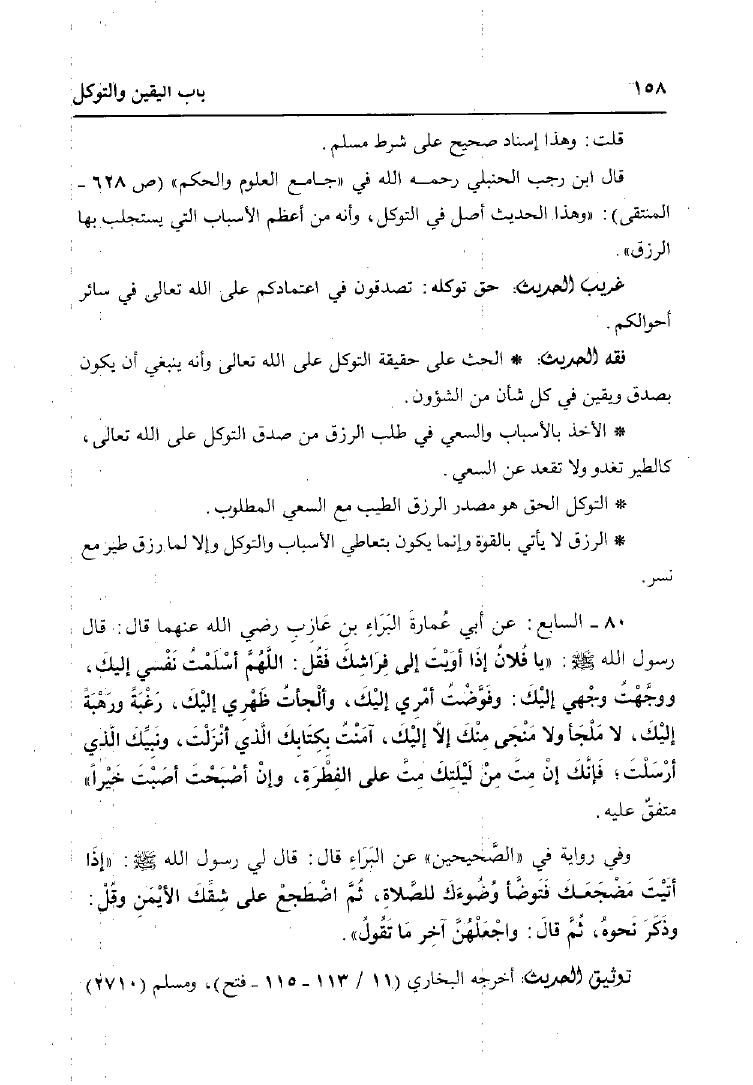 ١٥٨
باب اليقين والتوكل
قلت: وهذا إسناد صحيح على شرط مسلم.
قال ابن رجب الحنبلي رحمه الله في «جامع العلوم والحكم» (ص ٦٢٨ -
المنتقى): «وهذا الحديث أصل في التوكل، وأنه من أعظم الأسباب التي يستجلب بها
الرزق».
غريب الحديث: حق توكله: تصدقون في اعتمادكم على الله تعالى في سائر
أحوالكم.
فقه الحديث: * الحث على حقيقة التوكل على الله تعالى وأنه ينبغي أن يكون
بصدق ويقين في كل شأن من الشؤون.
* الأخذ بالأسباب والسعي في طلب الرزق من صدق التوكل على الله تعالى،
كالطير تغدو ولا تقعد عن السعي.
* التوكل الحق هو مصدر الرزق الطيب مع السعي المطلوب.
* الرزق لا يأتي بالقوة وإنما يكون بتعاطي الأسباب والتوكل وإلا لما رزق طير مع
نسر.
٨٠ - السابع: عن أبي عُمارةَ البَرَاءِ بن عَازِبٍ رضي الله عنهما قال: قال
رسول الله ﷺ: «يا فُلانُ إذا أوَيْتَ إلى فِرَاشِكَ فَقُل: اللَّهُمَّ أسْلَمْتُ نَفْسي إليكَ،
ووجَّهْتُ وجْهي إليْكَ: وفَوَّضْتُ أمْري إليْكَ، وألْجأتُ ظَهْري إليْكَ، رَغْبَةً ورَهْبَةً
إليْكَ، لا مَلْجَأ ولا مَنْجى مِنْكَ إلَّا إليْكَ، آمَنْتُ بِكتَابِكَ الَّذي أنْزَلْتَ، ونبيِّكَ الَّذي
أرْسَلْتَ؛ فَإنَّكَ إنْ مِتَّ مِنْ لَيْلَتِكَ مِتَّ على الفِطْرَةِ، وإنْ أصْبَحْتَ أصَبْتَ خَيْراً»
متفقٌ عليه.
وفي رواية في «الصَّحيحين» عن البَرَاءِ قال: قال لي رسول الله ﷺ: «إذَا
أتيْتَ مَضْجَعَكَ فَتَوضَّأ وُضُوءَكَ للصَّلاةِ، ثُمَّ اضْطَجِعْ على شِقِّكَ الأيْمَنِ وقُلْ:
وذَكَرَ نَحوهُ، ثُمَّ قالَ: واجْعَلْهُنَّ آخِرَ مَا تَقُولُ».
توثيق الحديث: أخرجه البخاري (١١ / ١١٣ - ١١٥ - فتح)، ومسلم (٢٧١٠)